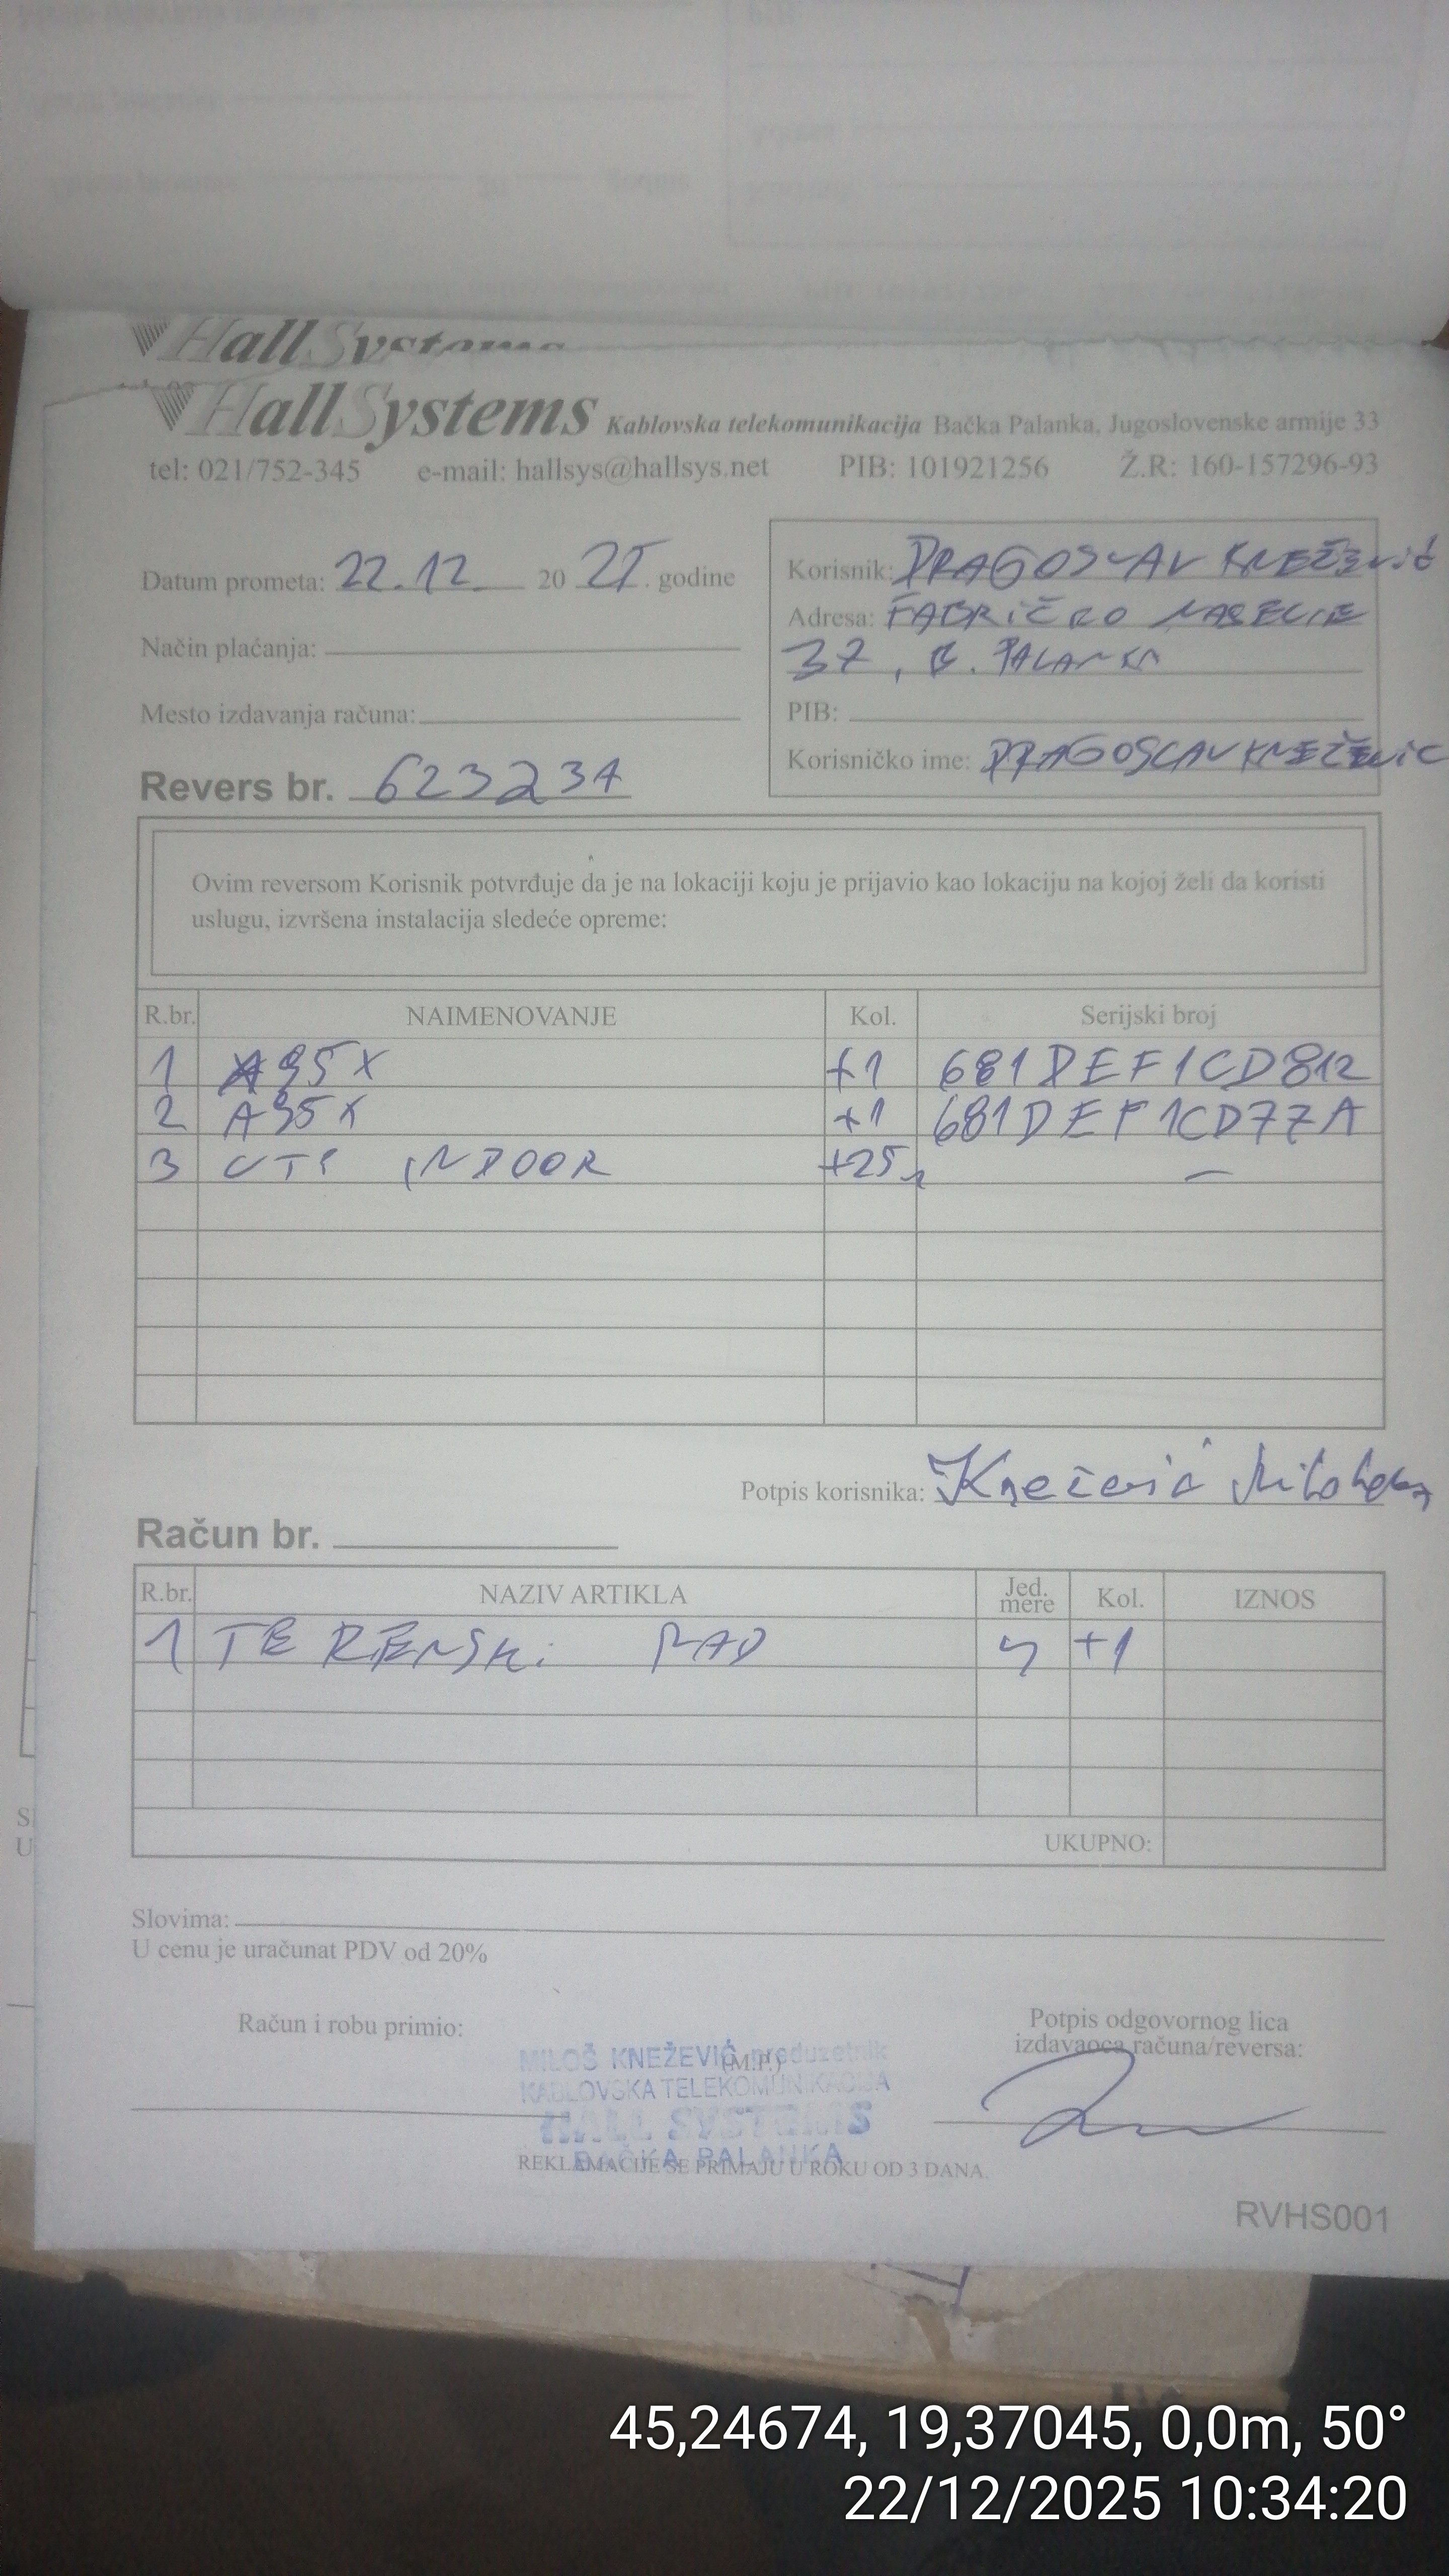 HallSystems
HallSystems Kablovska telekomunikacija Bačka Palanka, Jugoslovenske armije 33
tel: 021/752-345 e-mail: hallsys@hallsys.net PIB: 101921256 Ž.R: 160-157296-93
Datum prometa: 22.12. 20 25. godine
Način plaćanja:
Mesto izdavanja računa:
Revers br. 623234
Korisnik: DRAGOSLAV KNEŽEVIĆ
Adresa: FABRIČKO NASELJE
37, B. PALANKA
PIB:
Korisničko ime: DRAGOSLAVKNEŽEVIC
Ovim reversom Korisnik potvrđuje da je na lokaciji koju je prijavio kao lokaciju na kojoj želi da koristi
uslugu, izvršena instalacija sledeće opreme:
R.br. NAIMENOVANJE Kol. Serijski broj
1 A95X +1 681DEF1CD812
2 A95X +1 681DEF1CD77A
3 UTP INDOOR +25 —
Potpis korisnika: Knežević
Račun br.
R.br. NAZIV ARTIKLA Jed. mere Kol. IZNOS
1 TERENSKi RAD +1
UKUPNO:
Slovima:
U cenu je uračunat PDV od 20%
Račun i robu primio:
(M.P.)
Potpis odgovornog lica
izdavaoca računa/reversa:
MILOŠ KNEŽEVIĆ preduzetnik
KABLOVSKA TELEKOMUNIKACIJA
HALL SYSTEMS
BAČKA PALANKA
REKLAMACIJE SE PRIMAJU U ROKU OD 3 DANA.
RVHS001
45,24674, 19,37045, 0,0m, 50°
22/12/2025 10:34:20